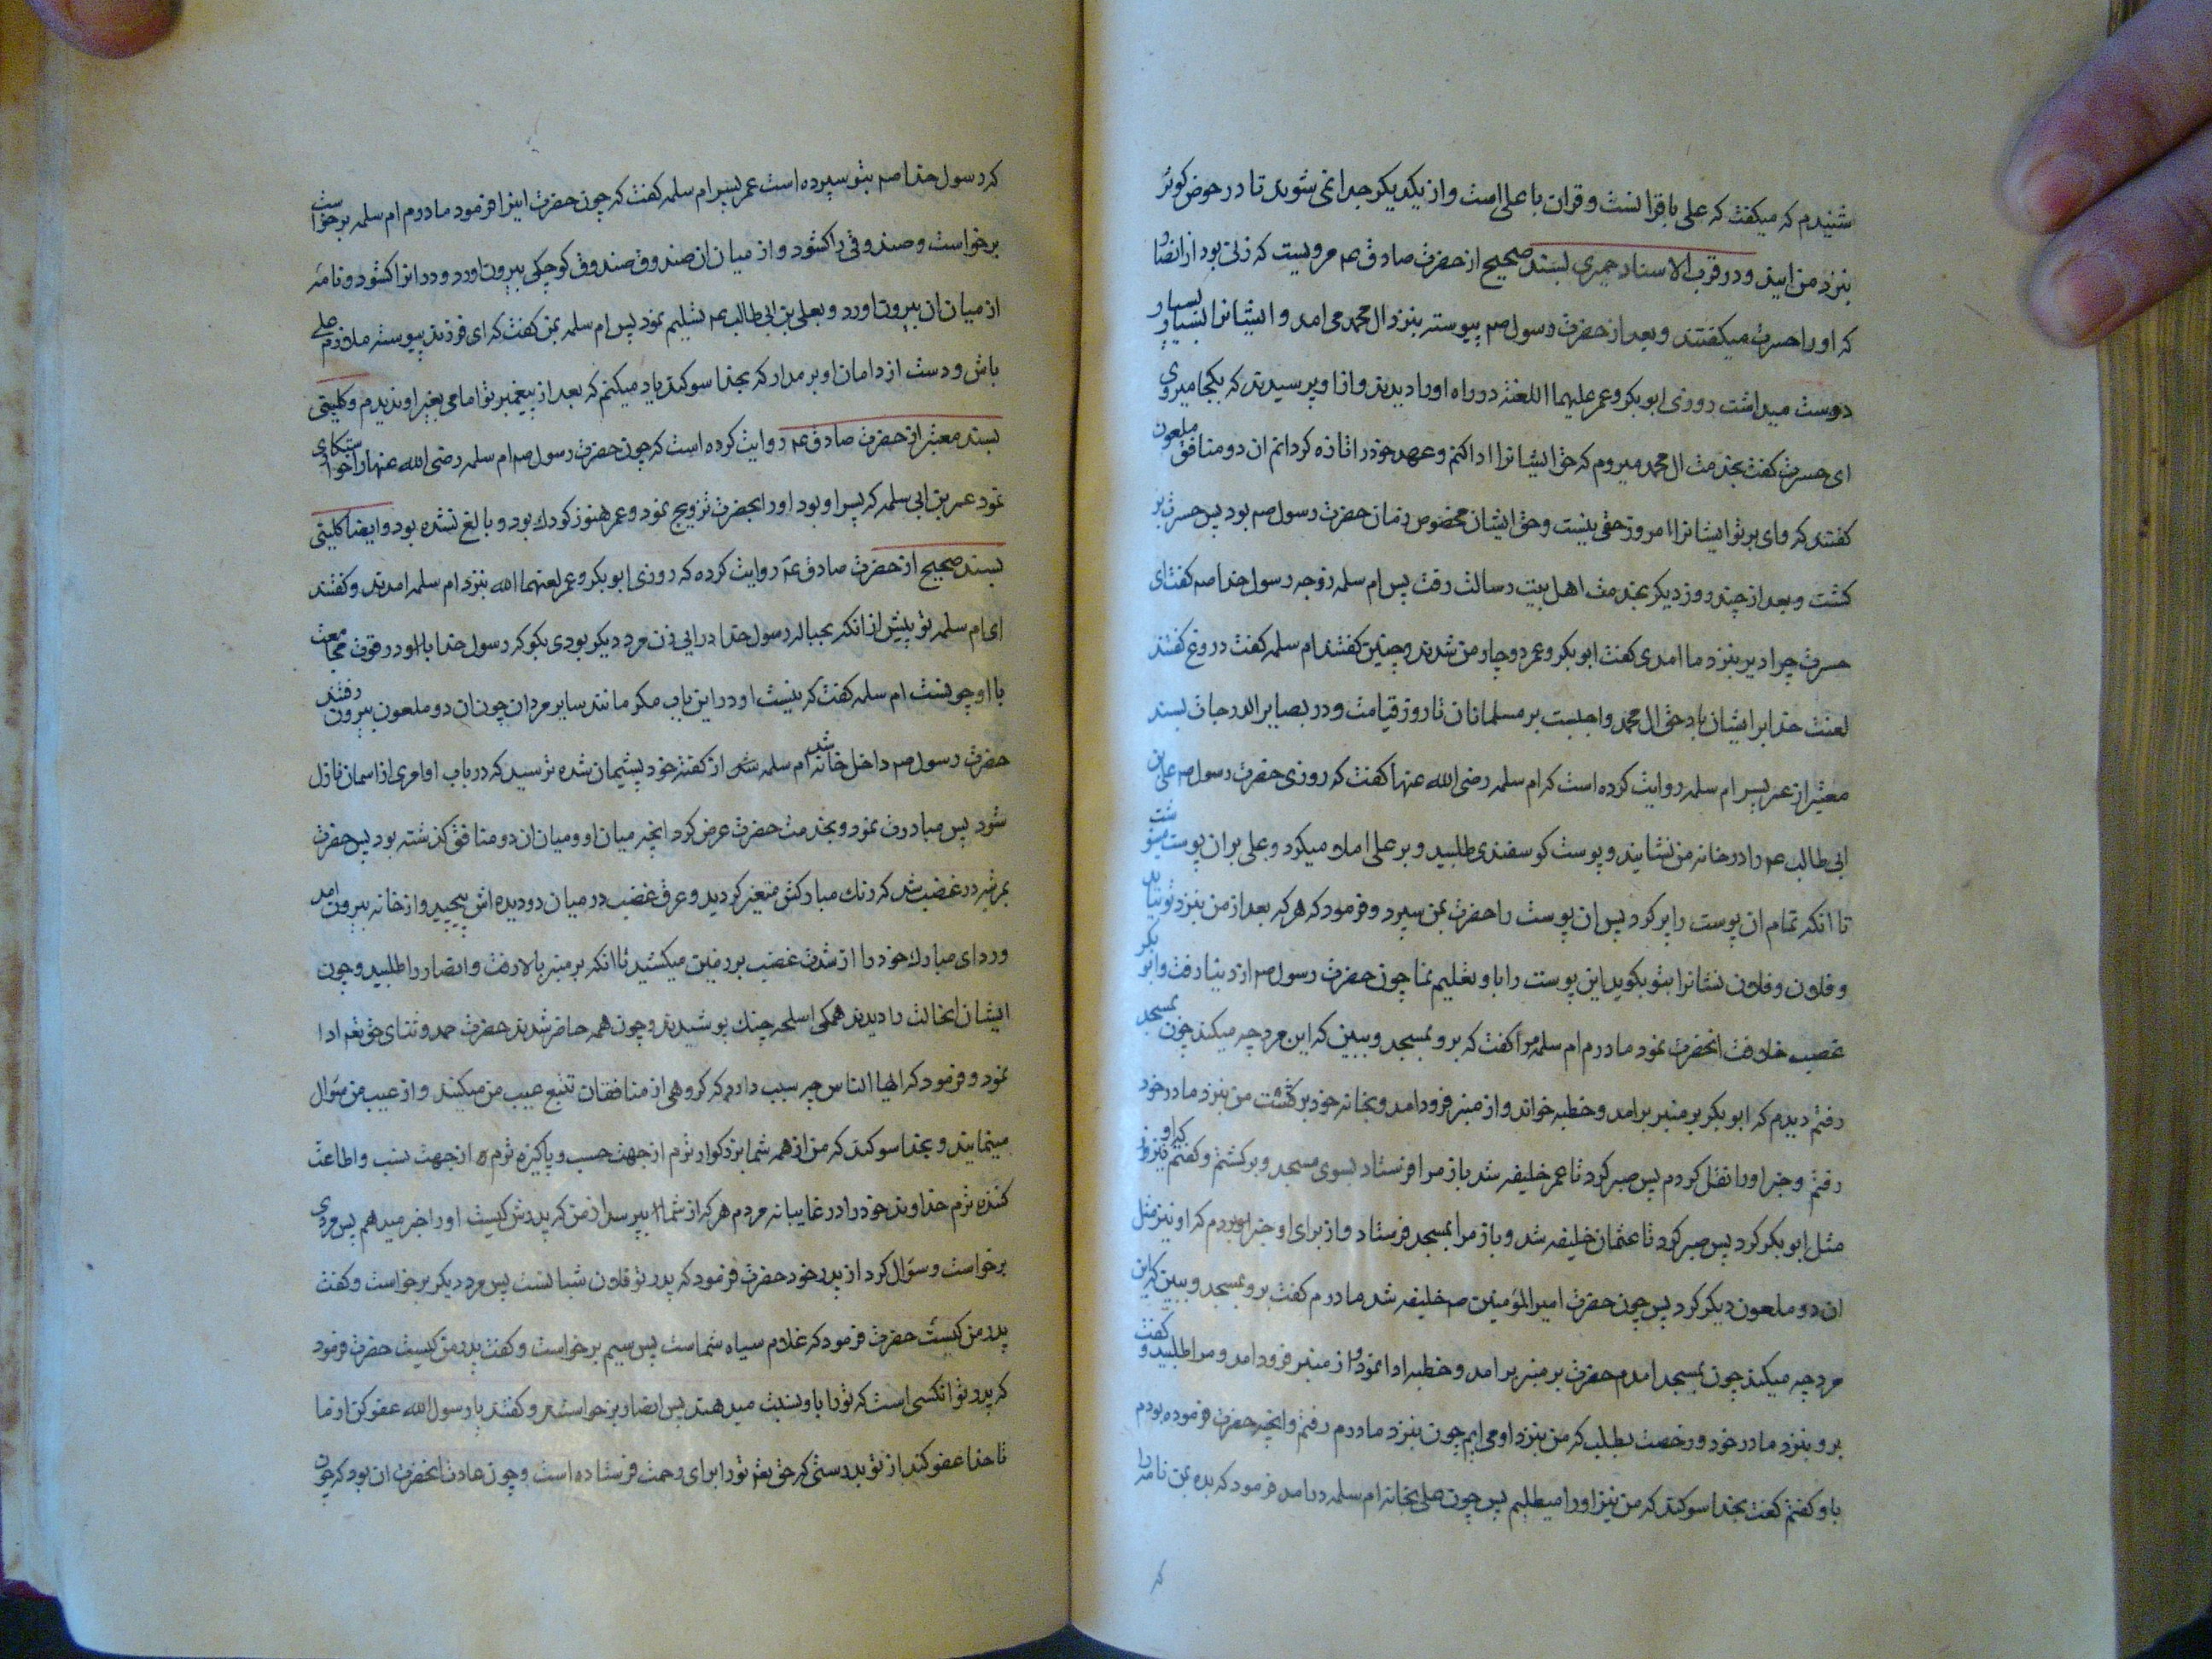 شنیدم که میکفت که علی با قرانست و قران با علی است و از یکدیکر جدا نمی شوند تا در حوض کوثر
بنزد من ایند و در قرب الاسناد حمیری بسند صحیح از حضرت صادق عم مرویست که زنی بود از انصار
که او را حسرت میکفتند و بعد از حضرت رسول صم پیوسته بنزد ال محمد می امد و ایشانرا بسیار
دوست میداشت روزی ابو بکر و عمر علیهما اللعنة در راه او را دیدند و از او پرسیدند که بکجا میروی
ای حسرت کفت بخدمت ال محمد میروم که حق ایشانرا ادا کنم و عهد خود را تازه کردانم ان دو منافق ملعون
کفتند که وای بر تو ایشانرا امروز حقی نیست و حق ایشان مخصوص زمان حضرت رسول صم بود پس حسرت بر
کشت و بعد از چند روز دیکر بخدمت اهل بیت رسالت رفت پس ام سلمه زوجه رسول خدا صم کفت ای
حسرت چرا دیر بنزد ما امدی کفت ابو بکر و عمر دوچار من شدند و چنین کفتند ام سلمه کفت دروغ کفتند
لعنت خدا بر ایشان باد حق ال محمد واجبست بر مسلمانان تا روز قیامت و در بصایر الدرجات بسند
معتبر از عمر پسر ام سلمه روایت کرده است که ام سلمه رضی الله عنها کفت که روزی حضرت رسول صم علی بن
ابی طالب عم را در خانه من نشانید و پوست کوسفندی طلبید و بر علی املا میکرد و علی بران پوست مینوشت
تا انکه تمام ان پوست را پر کرد پس ان پوست را حضرت بمن سپرد و فرمود که هر که بعد از من بنزد تو بیاید
و فلان و فلان نشانرا بتو بکوید این پوست را باو تسلیم نما چون حضرت رسول صم از دنیا رفت و ابو بکر
غصب خلافت انحضرت نمود مادرم ام سلمه مرا کفت که برو بمسجد و ببین که این مرد چه میکند چون بمسجد
رفتم دیدم که ابو بکر بر منبر برامد و خطبه خواند و از منبر فرود امد و بخانه خود برکشت من بنزد مادر خود
رفتم و خبر او را نقل کردم پس صبر کرد تا عمر خلیفه شد باز مرا فرستاد بسوی مسجد و برکشتم و کفتم که او نیز
مثل ابو بکر کرد پس صبر کرد تا عثمان خلیفه شد و باز مرا بمسجد فرستاد و از برای او خبر اوردم که او نیز مثل
ان دو ملعون دیکر کرد پس چون حضرت امیر المؤمنین صم خلیفه شد مادرم کفت برو بمسجد و ببین که این
مرد چه میکند چون بمسجد امدم حضرت بر منبر برامد و خطبه ادا نمود و از منبر فرود امد و مرا طلبید و کفت
برو بنزد مادر خود و رخصت بطلب که من بنزد او می ایم چون بنزد مادرم رفتم و انچه حضرت فرموده بودم
باو کفتم کفت بخدا سوکند که من نیز او را میطلبم پس چون علی بخانه ام سلمه درامد فرمود که بده بمن نامه را
که
که رسول خدا صم بتو سپرده است عمر پسر ام سلمه کفت که چون حضرت اینرا فرمود مادرم ام سلمه برخواست
برخواست و صندوقی را کشود و از میان ان صندوق صندوق کوچکی بیرون اورد و در انرا کشود و نامه
از میان ان بیرون اورد و بعلی بن ابی طالب عم تسلیم نمود پس ام سلمه بمن کفت که ای فرزند پیوسته ملازم علی
باش و دست از دامان او بر مدار که بخدا سوکند یاد میکنم که بعد از پیغمبر تو امامی بغیر او ندیدم و کلینی
بسند معتبر از حضرت صادق عم روایت کرده است که چون حضرت رسول صم ام سلمه رضی الله عنها را خواستکاری
نمود عمر بن ابی سلمه که پسر او بود او را بحضرت تزویج نمود و عمر هنوز کودك بود و بالغ نشده بود و ایضا کلینی
بسند صحیح از حضرت صادق عم روایت کرده که روزی ابو بکر و عمر لعنهما الله بنزد ام سلمه امدند و کفتند
ای ام سلمه تو پیش از انکه بحباله رسول خدا درایی زن مرد دیکر بودی بکو که رسول خدا با او در قوت مجامعت
با او چونست ام سلمه کفت که نیست او در این باب مکر مانند سایر مردان چون ان دو ملعون بیرون رفتند
حضرت رسول صم داخل خانه شد ام سلمه از کفته خود پشیمان شده ترسید که در باب او امری از اسمان نازل
شود پس مبادرت نمود و بخدمت حضرت عرض کرد انچه میان او و میان ان دو منافق کذشته بود پس حضرت
بمرتبه در غضب شد که رنك مبارکش متغیر کردید و عرق غضب در میان دو دیده اش پیچید و از خانه بیرون امد
و ردای مبارك خود را از شدت غضب بر زمین میکشید تا انکه بر منبر بالا رفت و انصار را طلبید و چون
ایشان انحالت را دیدند همکی اسلحه جنك پوشیدند و چون همه حاضر شدند حضرت حمد و ثنای حق تعم ادا
نمود و فرمود که ایها الناس چه سبب دارد که کروهی از منافقان تتبع عیب من میکنند و از عیب من سؤال
مینمایند و بخدا سوکند که من از همه شما بزرکوار ترم از جهت حسب و پاکیزه ترم از جهت نسب و اطاعت
کننده ترم خداوند خود را در غایبانه مردم هر که از شما بپرسد از من که پدرش کیست او را خبر میدهم پس مردی
برخواست و سؤال کرد از پدر خود حضرت فرمود که پدر تو فلان شبانست پس مرد دیکر برخواست و کفت
پدر من کیست حضرت فرمود که غلام سیاه شماست پس سیم برخواست و کفت پدر من کیست حضرت فرمود
که پدر تو انکسی است که تو را باو نسبت میدهند پس انصار برخواستند و کفتند یا رسول الله عفو کن از ما
تا خدا عفو کند از تو بدرستی که حق تعم تو را برای رحمت فرستاده است و چون عادت انحضرت ان بود که چون